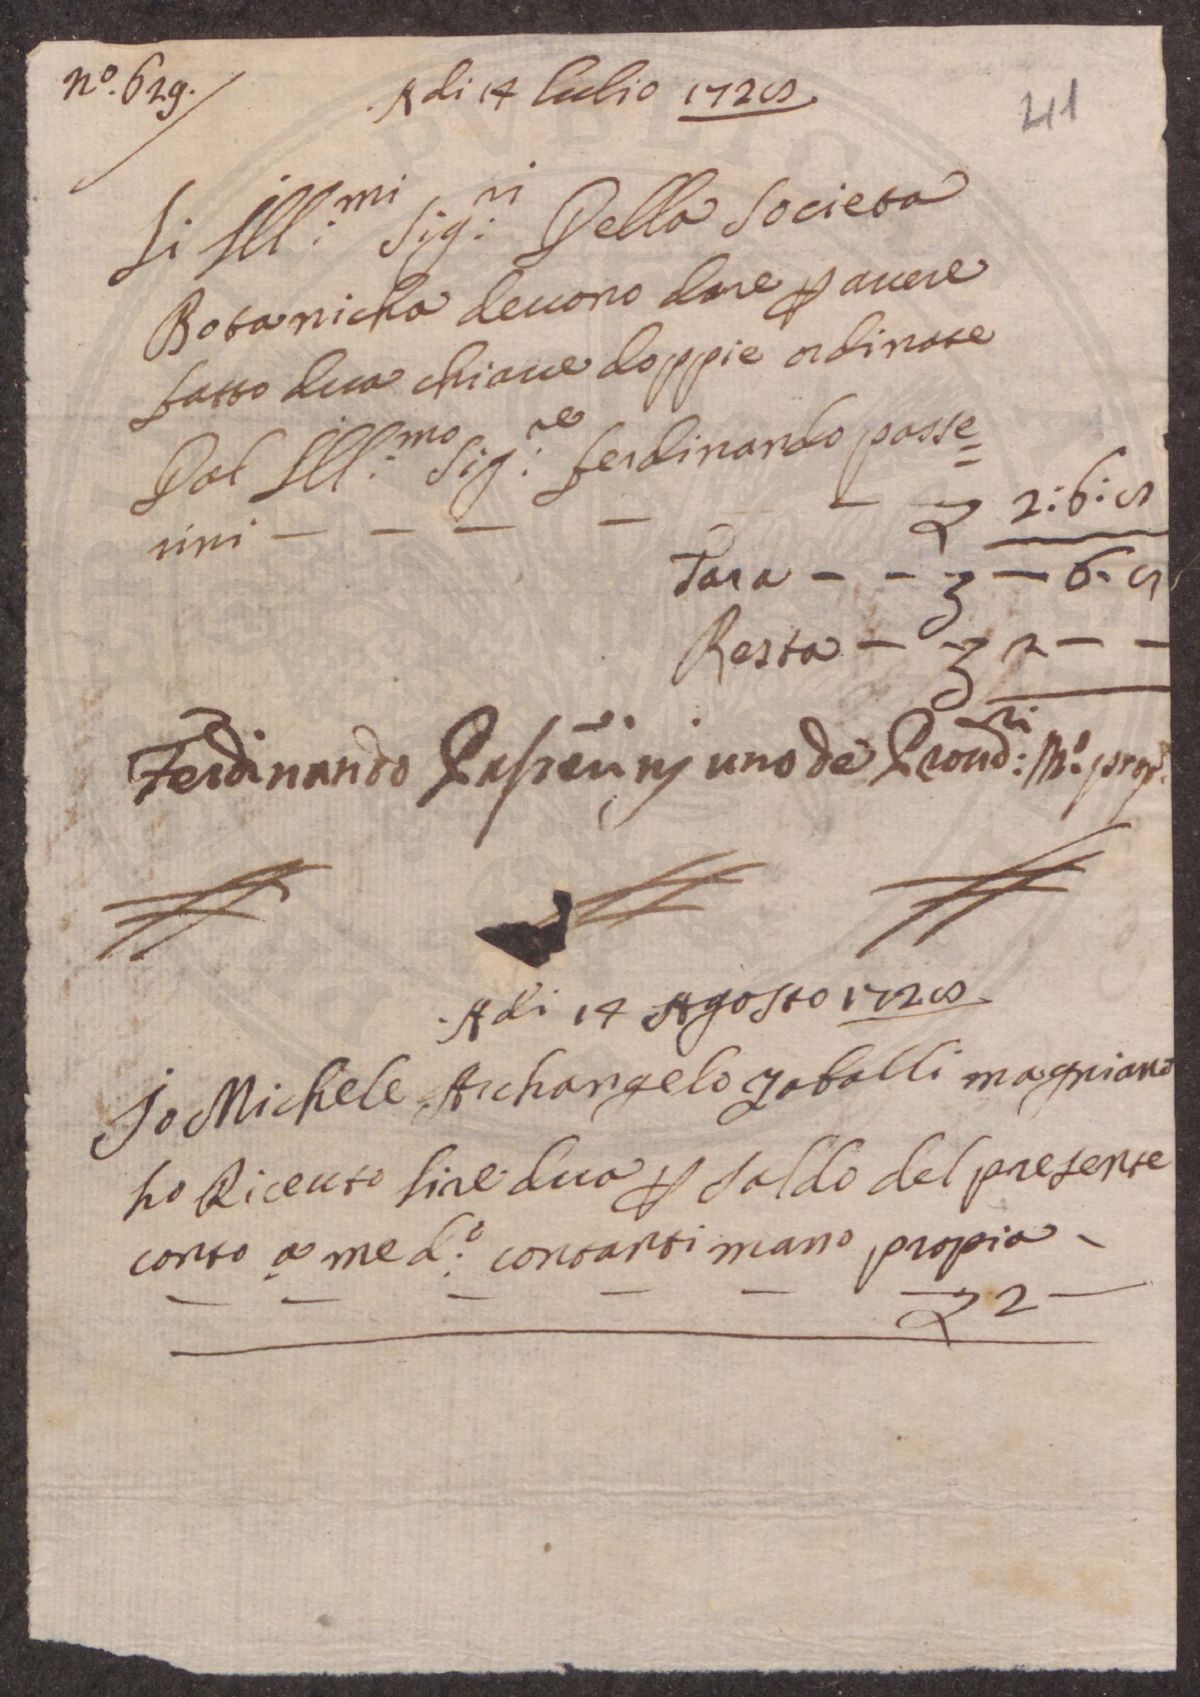 n.º 629.
Adi 14 lulio 1728
41
Li Ill:mi Sig:ri Della Societa
Botanicha deuono dare p auere
fatto dua chiaue doppie ordinate
Dal Ill:mo Sig:re ferdinando passe=
rini — — — — — — £ 2:6:8
Tara — — £ — 6. 8
Resta — — £ 2 — —
Ferdinando Passerinj uno de Proud:ri Mº propª
Adi 14 Agosto 1728
Io Michele Archangelo magniano
ho Riceuto lire dua p saldo del presente
conto a me d:º contanti mano propia —
— — — — — — £ 2 —